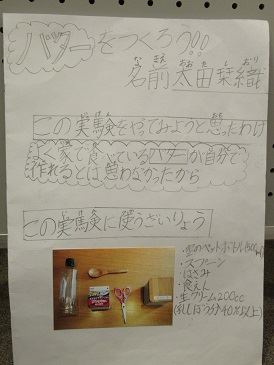 バターをつくろう!!
名前 太田栞織
なまえ おおた しおり
この実験をやってみようと思ったわけ
よく家で食べているバターが自分で
作れるとは思わなかったから
この実験に使うざいりょう
・空のペットボトル(500ml)
・スプーン
・はさみ
・食えん
・生クリーム200cc
(乳しぼう分40%以上)